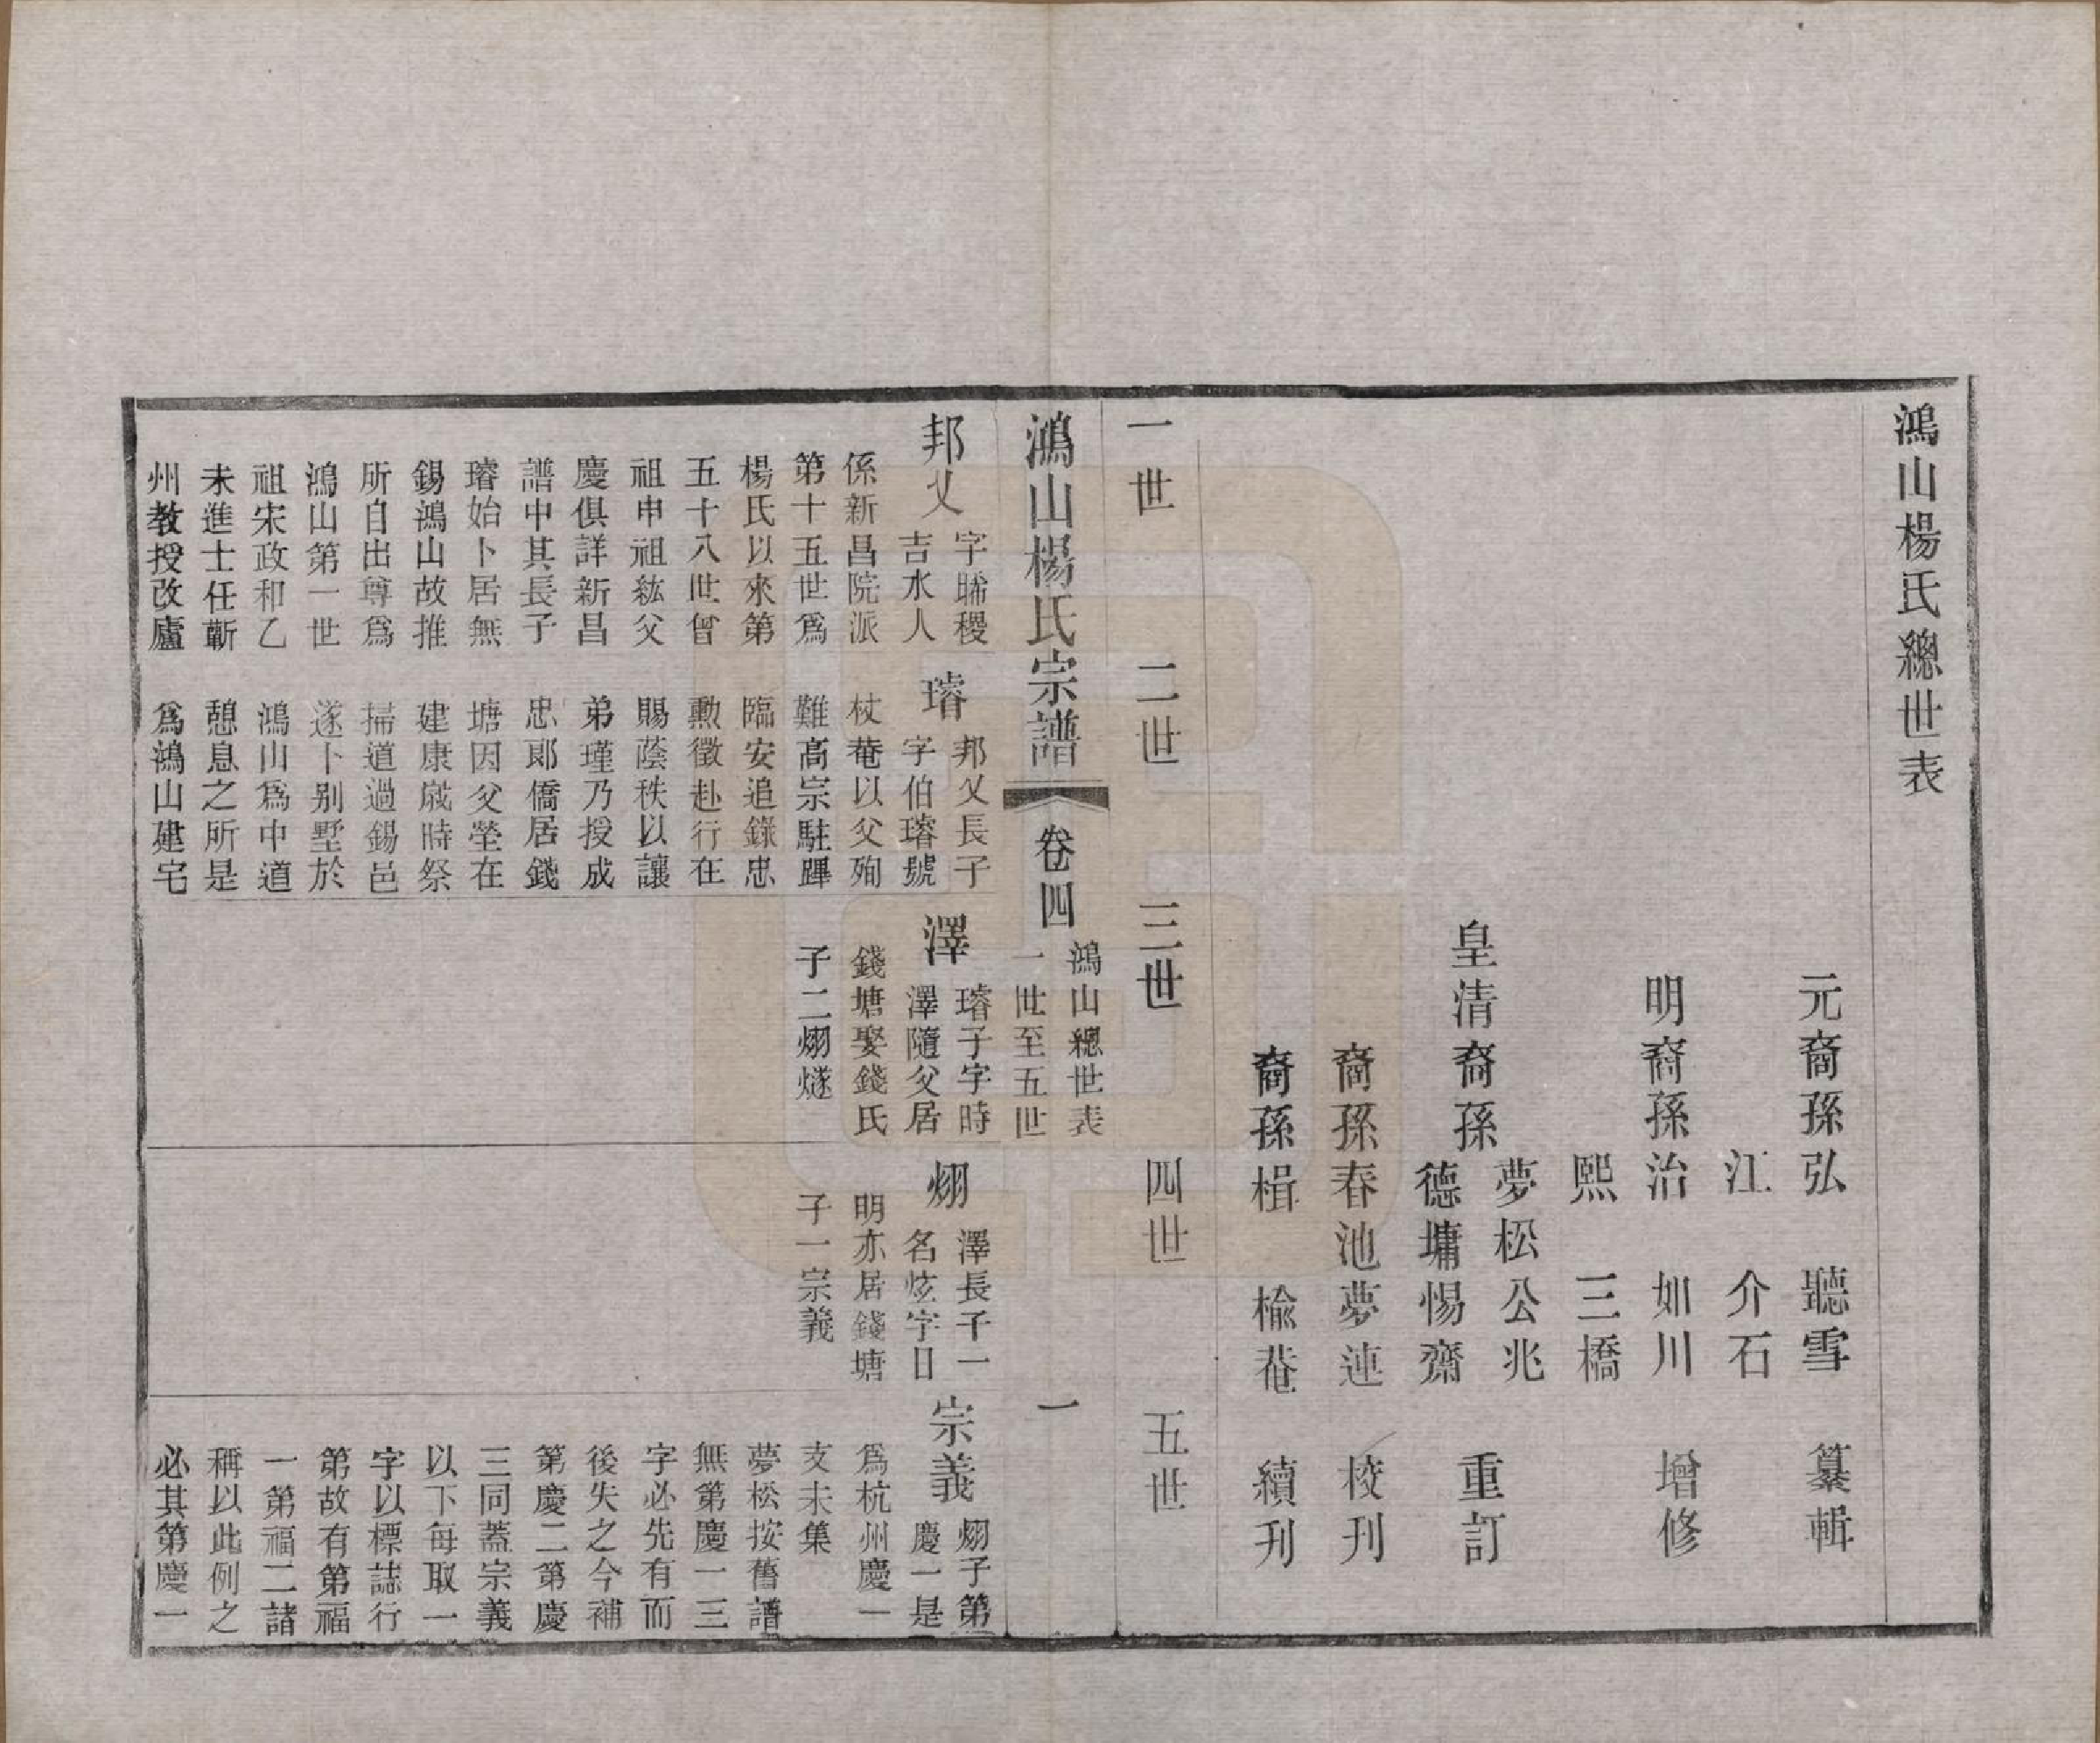 鴻山楊氏總世表
元裔孫弘 聽雪 纂輯
江 介石
明裔孫治 如川 增修
熙 三橋
夢松公兆
皇清裔孫 重訂
德墉惕齋
裔孫春池夢蓮 校刊
裔孫楫 楡菴 續刊
一世 二世 三世 四世 五世
鴻山楊氏宗譜 卷四 鴻山總世表 一世至五世 一
邦乂 字晞稷
吉水人
係新昌院派
第十五世爲
楊氏以來第
五十八世曾
祖申祖紘父
慶俱詳新昌
譜中其長子
璿始卜居無
錫鴻山故推
所自出尊爲
鴻山第一世
祖宋政和乙
未進士任蘄
州教授改廬
璿 邦乂長子
字伯璿號
杖菴以父殉
難高宗駐蹕
臨安追錄忠
勲徵赴行在
賜蔭秩以讓
弟瑾乃授成
忠郞僑居錢
塘因父塋在
建康歲時祭
掃道過錫邑
遂卜别墅於
鴻山爲中道
憩息之所是
爲鴻山建宅
澤 璿子字時
澤隨父居
錢塘娶錢氏
子二㷟燧
㷟 澤長子一
名炫字日
明亦居錢塘
子一宗義
宗義 㷟子第
慶一是
爲杭州慶一
支未集
夢松按舊譜
無第慶一三
字必先有而
後失之今補
第慶二第慶
三同蓋宗義
以下每取一
字以標誌行
第故有第福
一第福二諸
稱以此例之
必其第慶一